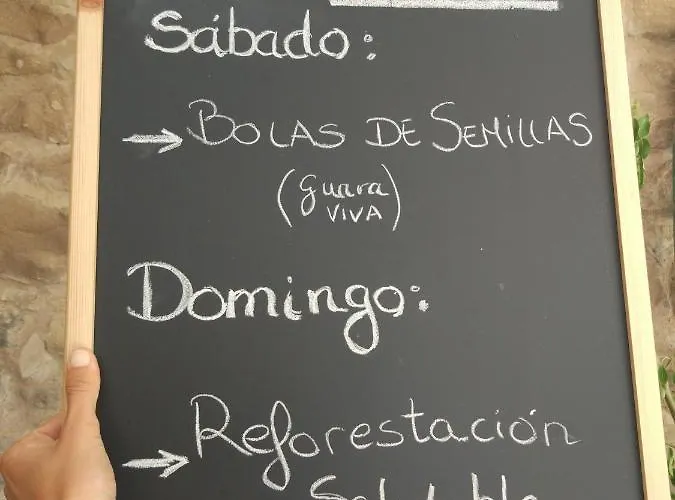 Sábado:
→ BOLAS DE SEMILLAS
(guara
VIVA)
Domingo:
→ Reforestación